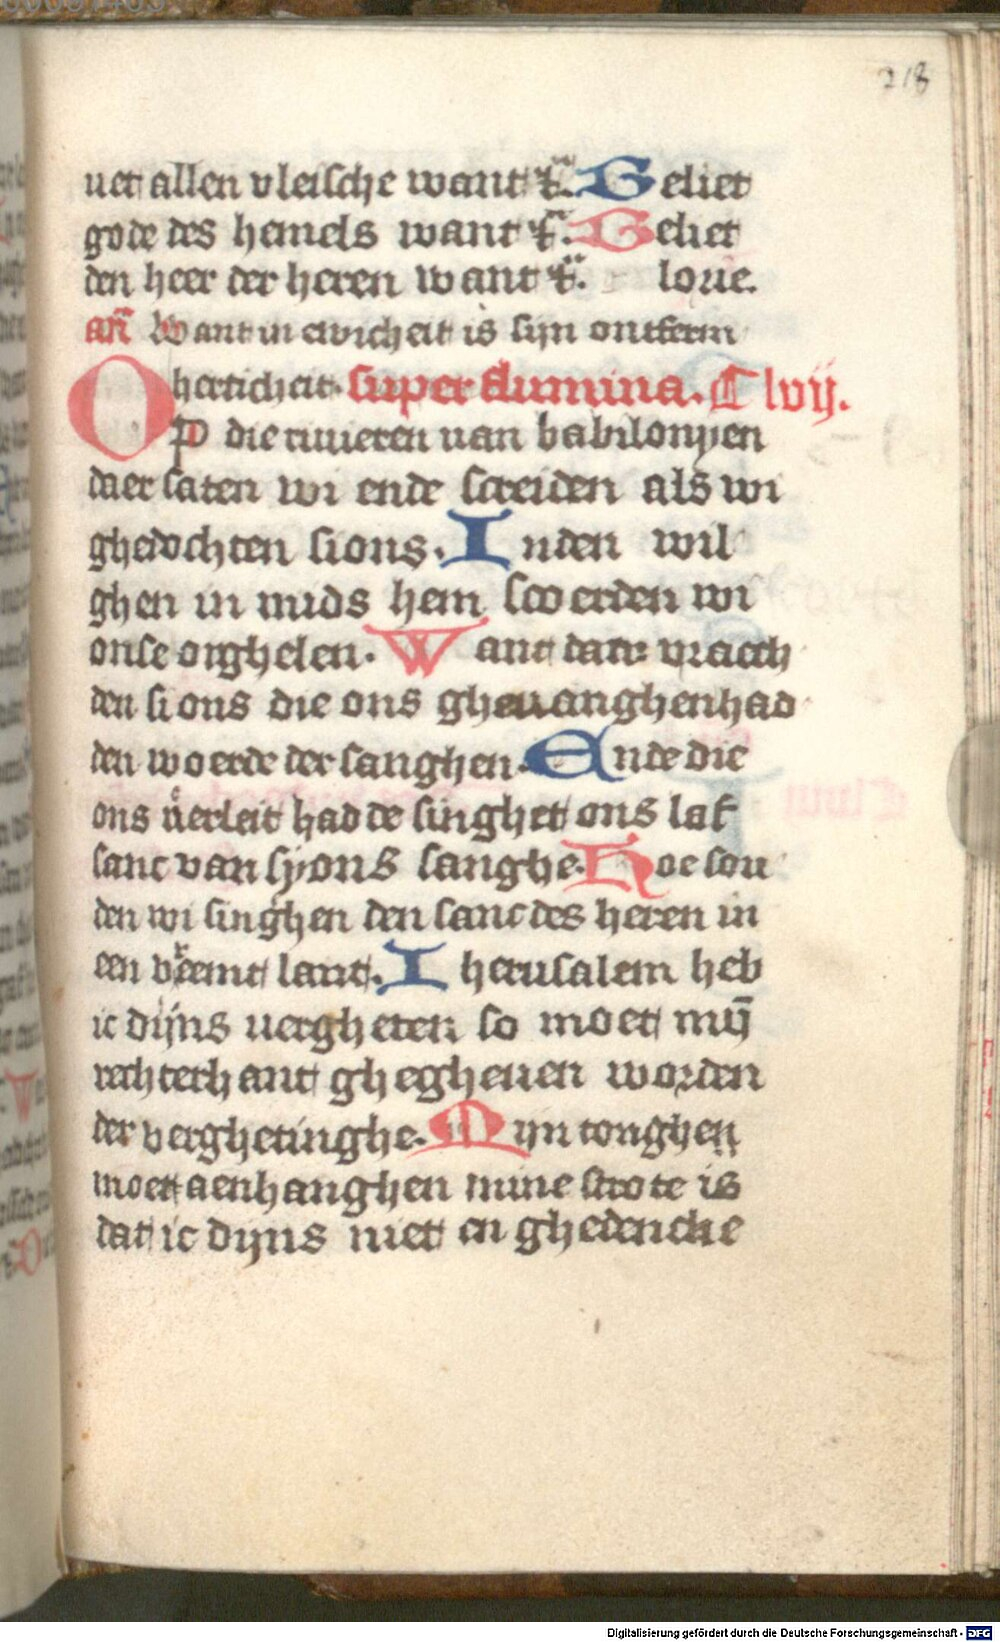 218
uet allen vleische want ⁊c̄. Beliet
gode des hemels want ⁊c̄. Beliet
den heer der heren want ⁊c̄. loue.
an̄ Want in ewicheit is sijn ontferm
herticheit. super flumina. Clvij.
OP die riuieren uan babilonijen
daer saten wi ende screiden als wi
ghedochten sions. Inden wil
ghen in mids hem scoerden wi
onse orghelen. Want daer vraech
den sions die ons gheuanghen had
den woerde der sanghen. Ende die
ons u̇erleit hadde singhet ons lof
sanc van syons sanghe. Hoe sou
den wi singhen den sanc des heren in
een vremt lant. Iherusalem heb
ic dijns uergheten so moet mij̄
rechterhant ghegheuen worden
der verghetinghe. Mijn tonghen
moet aenhanghen mine strote is
dat ic dijns niet en ghedencke
Digitalisierung gefördert durch die Deutsche Forschungsgemeinschaft - DFG